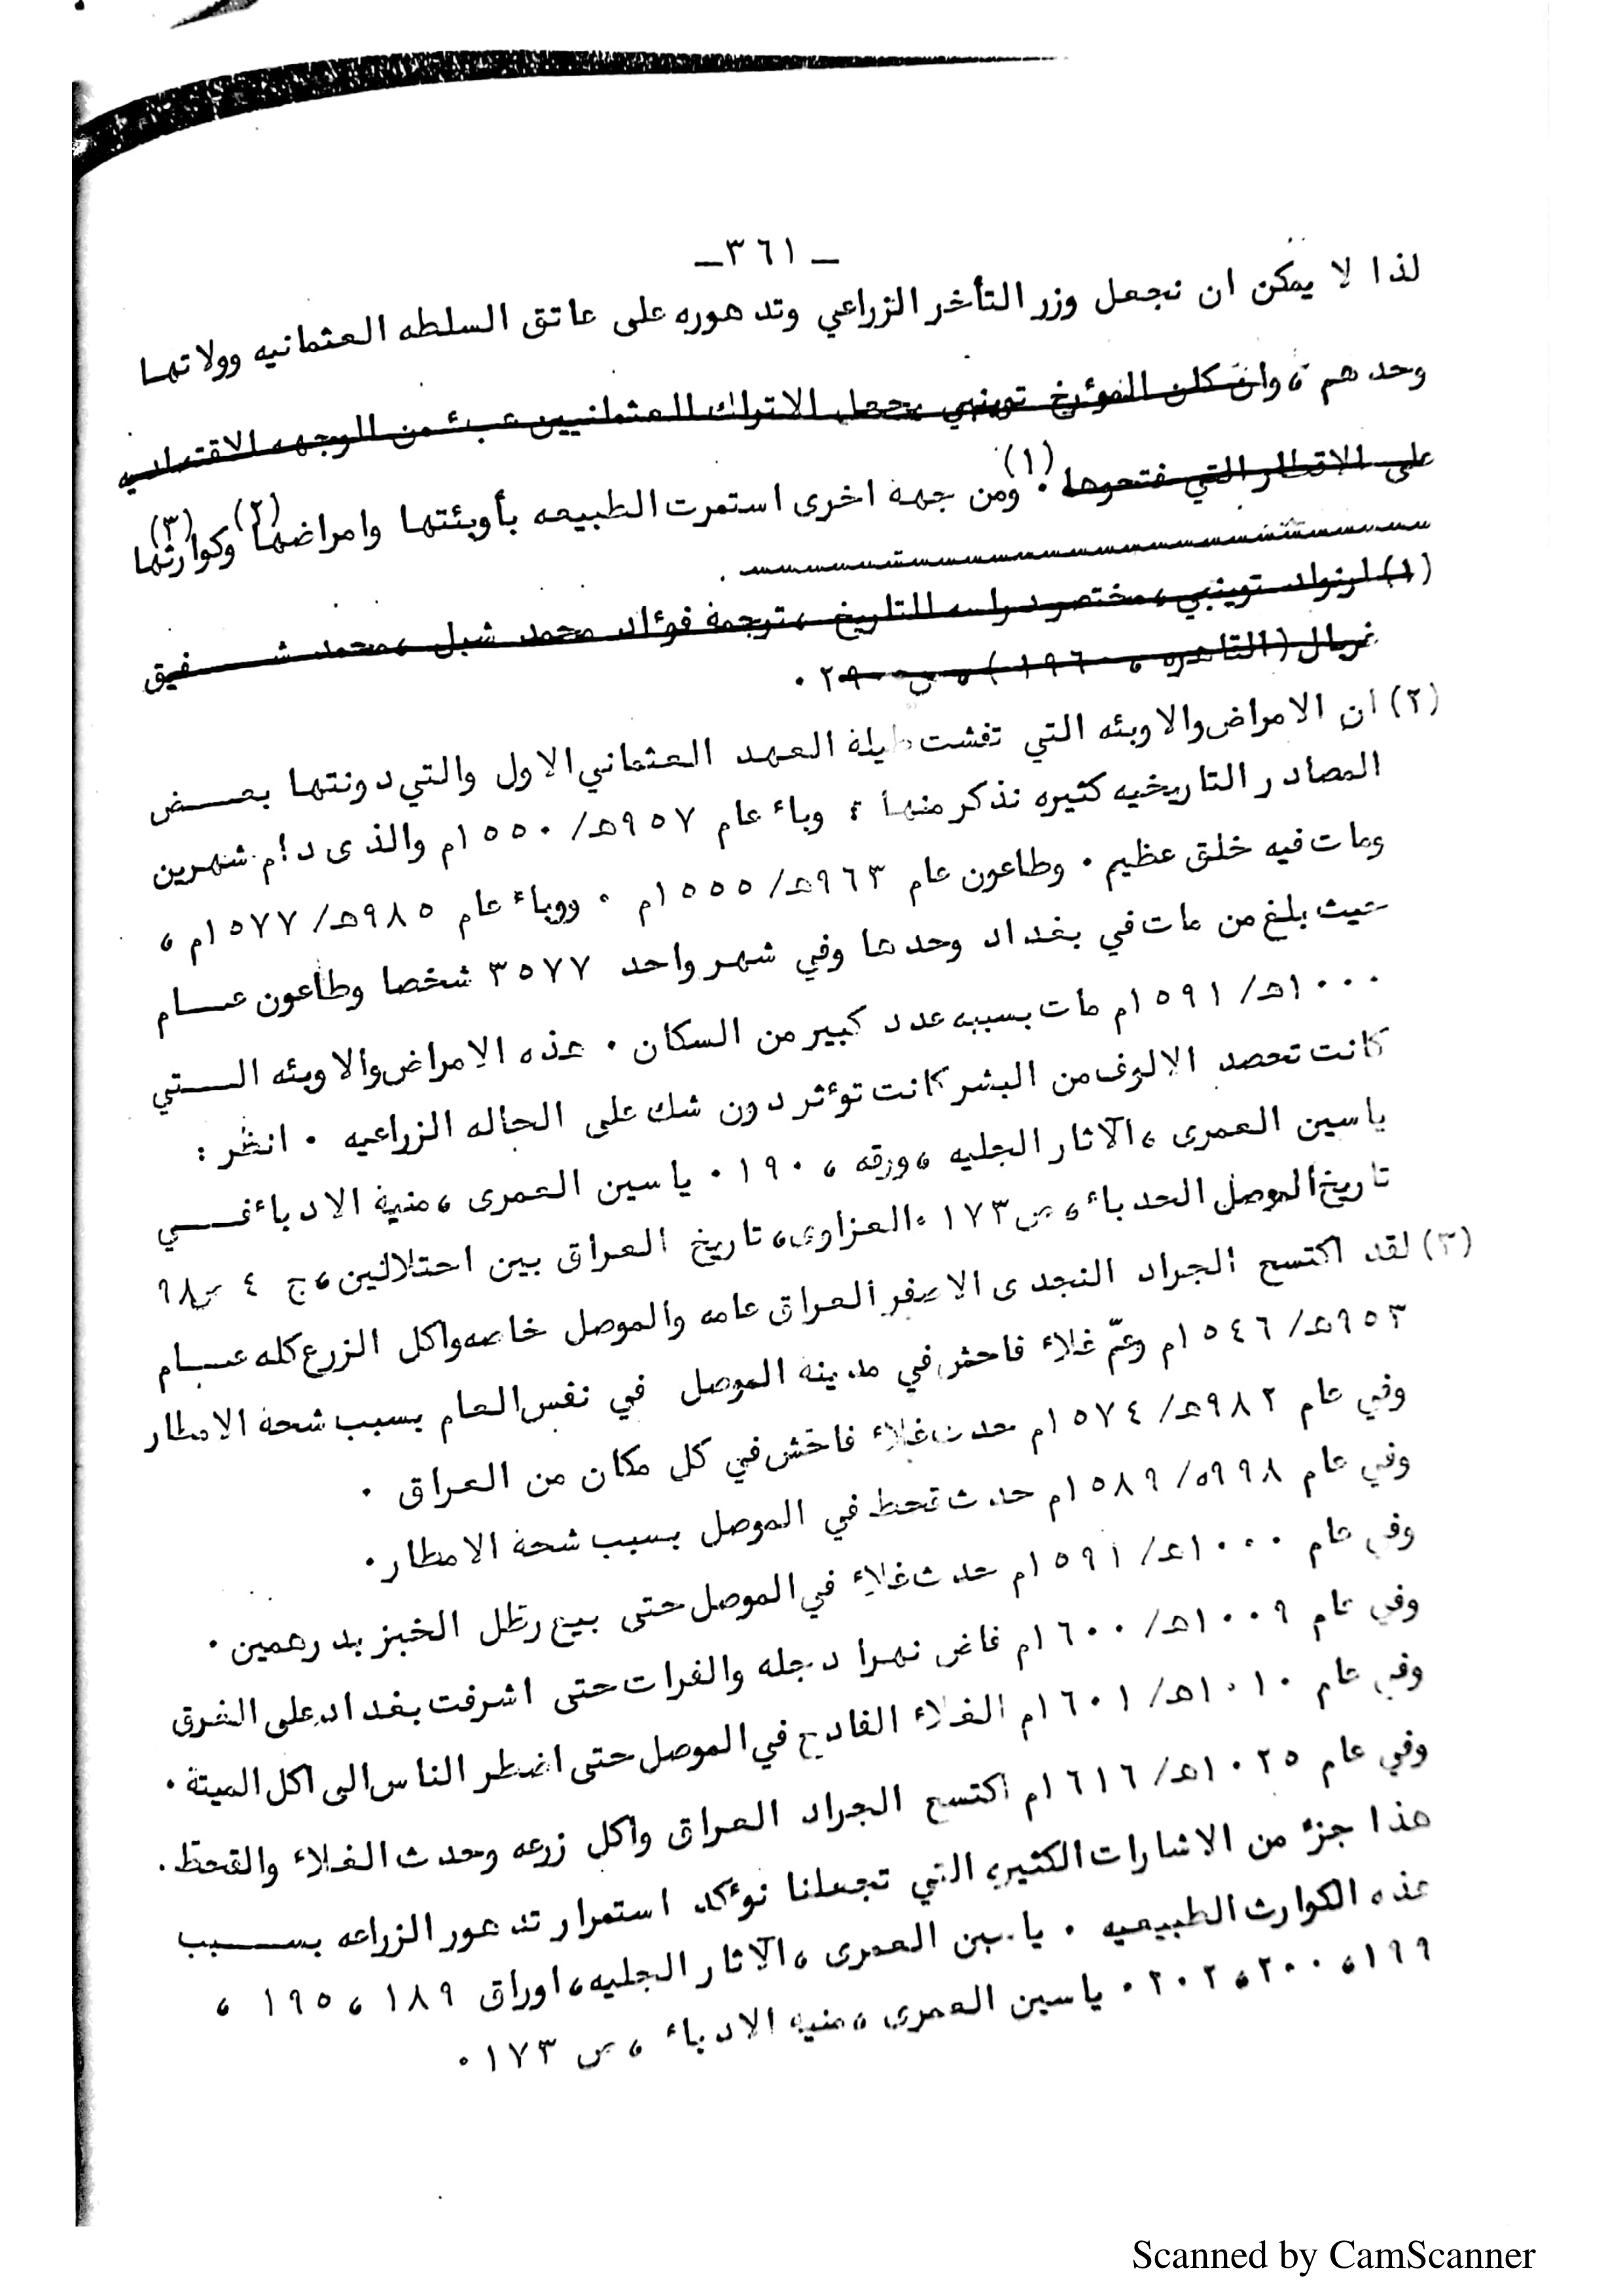 ـ ٣٦١ ـ
لذا لا يمكن ان نجعل وزر التأخر الزراعي وتدهوره على عاتق السلطه العثمانيه وولاتها
وحدهم ، وان كان المؤرخ توينبي يجعل الاتراك العثمانيين عبء من الوجهه الاقتصاديه
على الاقطار التي فتحوها (١) . ومن جهة اخرى استمرت الطبيعه بأوبئتها وامراضها (٢) وكوارثها (٣)
(١) ارنولد توينبي ، مختصر دراسه للتاريخ ، ترجمة فؤاد محمد شبل ، محمد شـــفيق
غربال (القاهره ، ١٩٦٠) ، ص ٢٩٠ .
(٢) ان الامراض والاوبئه التي تفشت طيلة العهد العثماني الاول والتي دونتها بعـــض
المصادر التاريخيه كثيره نذكر منها : وباء عام ٩٥٧هـ/ ١٥٥٠م والذى دام شهرين
ومات فيه خلق عظيم . وطاعون عام ٩٦٣هـ/ ١٥٥٥م . ووباء عام ٩٨٥هـ/ ١٥٧٧م ،
حيث بلغ من مات في بغداد وحدها وفي شهر واحد ٣٥٧٧ شخصا وطاعون عـــام
١٠٠٠هـ/ ١٥٩١م مات بسببه عدد كبير من السكان . هذه الامراض والاوبئه الـــتي
كانت تحصد الالوف من البشر كانت تؤثر دون شك على الحاله الزراعيه . انظر :
ياسين العمرى ، الآثار الجليه ، ورقه ، ١٩٠ . ياسين العمرى ، منية الادباء فـــي
تاريخ الموصل الحدباء ، ص ١٧٣ . العزاوى ، تاريخ العراق بين احتلالين ، ج ٤ ص ٩٨
(٣) لقد اكتسح الجراد النجدى الاصفر العراق عامه والموصل خاصه واكل الزرع كله عـــام
٩٥٣هـ/ ١٥٤٦م وعمّ غلاء فاحش في مدينه الموصل في نفس العام بسبب شحة الامطار
وفي عام ٩٨٢هـ/ ١٥٧٤م حدث غلاء فاحش في كل مكان من العراق .
وفي عام ٩٩٨ه/ ١٥٨٩م حدث قحط في الموصل بسبب شحة الامطار .
وفي عام ١٠٠٠هـ/ ١٥٩١م حدث غلاء في الموصل حتى بيع رطل الخبز بدرهمين .
وفي عام ١٠٠٩هـ/ ١٦٠٠م فاض نهرا دجله والفرات حتى اشرفت بغداد على الغرق
وفي عام ١٠١٠هـ/ ١٦٠١م الغلاء الفادح في الموصل حتى اضطر الناس الى اكل الميتة .
وفي عام ١٠٢٥هـ/ ١٦١٦م اكتسح الجراد العراق واكل زرعه وحدث الغلاء والقحط .
هذا جزء من الاشارات الكثيره التي تجعلنا نؤكد استمرار تدهور الزراعه بســـبب
هذه الكوارث الطبيعيه . ياسين العمرى ، الآثار الجليه ، اوراق ١٨٩ ، ١٩٥ ،
١٩٩ ، ٢٠٠ ، ٢٠٢ . ياسين العمرى ، منيه الادباء ، ص ١٧٣ .
Scanned by CamScanner